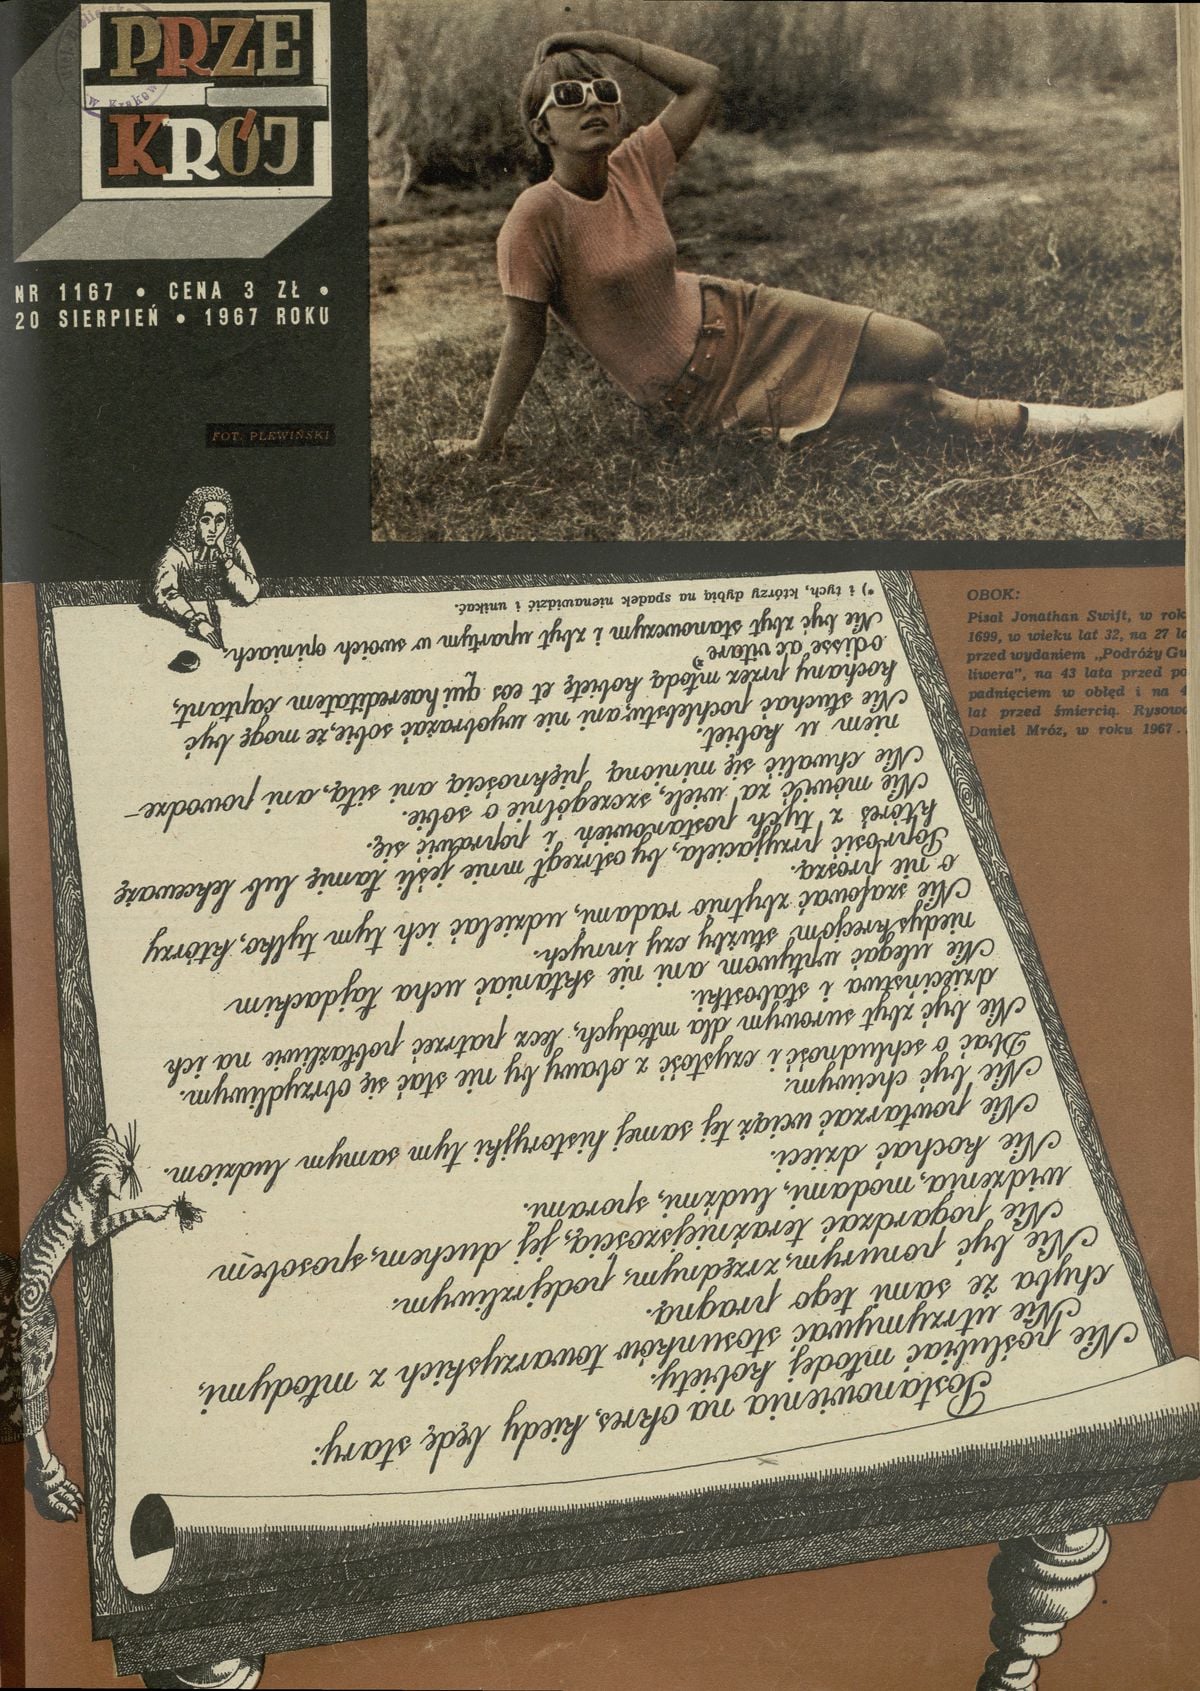 PRZE
KRÓJ
NR 1167 • CENA 3 ZŁ •
20 SIERPIEŃ • 1967 ROKU
FOT. PLEWIŃSKI
OBOK:
Pisał Jonathan Swift, w rok
1699, w wieku lat 32, na 27 la
przed wydaniem „Podróży Gu
liwera”, na 43 lata przed po
padnięciem w obłęd i na 4
lat przed śmiercią. Rysowa
Daniel Mróz, w roku 1967..
Postanowienia na okres, kiedy będę stary:
Nie poślubiać młodej kobiety.
Nie utrzymywać stosunków towarzyskich z młodymi,
chyba że sami tego pragną.
Nie być ponurym, zrzędnym, podejrzliwym.
Nie pogardzać teraźniejszością, jej duchem, sposobem
widzenia, modami, ludźmi, sporami.
Nie kochać dzieci.
Nie powtarzać wciąż tej samej historyjki tym samym ludziom.
Nie być chciwym.
Dbać o schludność i czystość z obawy by nie stać się obrzydliwym.
Nie być zbyt surowym dla młodych, lecz patrzeć pobłażliwie na ich
dzieciństwa i słabostki.
Nie ulegać wpływom ani nie skłaniać ucha łajdackim
niedyskrecjom służby czy innych.
Nie szafować zbytnio radami, udzielać ich tym tylko, którzy
o nie proszą.
Poprosić przyjaciela, by ostrzegł mnie jeśli łamię lub lekceważę
któreś z tych postanowień i poprawić się.
Nie mówić za wiele, szczególnie o sobie.
Nie chwalić się minioną pięknością ani siłą, ani powodze-
niem u kobiet.
Nie słuchać pochlebstw, ani nie wyobrażać sobie, że mogę być
kochany przez młodą kobietę et eos qui haereditatem captant,
odisse ac vitare *)
Nie być zbyt stanowczym i zbyt upartym w swoich opiniach.
*) i tych, którzy dybią na spadek nienawidzić i unikać.